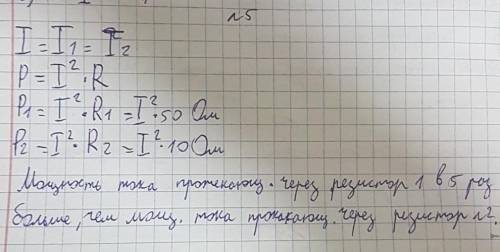 №5
I = I₁ = I₂
P = I² · R
P₁ = I² · R₁ = I² · 50 Ом
P₂ = I² · R₂ = I² · 10 Ом
Мощность тока протекающ. через резистор 1 в 5 раз
больше, чем мощ. тока протекающ. через резистор №2.